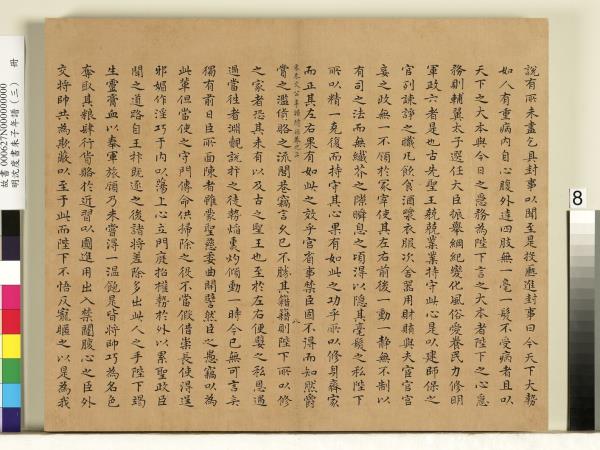 說有所未盡乞具封事以聞至是投匭進封事曰今天下大勢
如人有重病內自心腹外達四肢無一毫一髮不受病者且以
天下之大本與今日之急務為陛下言之大本者陛下之心急
務則輔翼太子選任大臣振舉綱紀變化風俗愛養民力修明
軍政六者是也古先聖王兢兢業業持守此心是以建師保之
官列諫諍之職凡飲食酒漿衣服次舍器用財賄與夫宦官宮
妾之政無一不領於冢宰使其左右前後一動一靜無不制以
有司之法而無纖芥之隙瞬息之頃得以隱其毫髮之私陛下
所以精一克復而持守其心果有如此之功乎所以修身齊家
而正其左右果有如此之效乎宮省事禁臣固不得而知然爵
賞之濫貨賂之流閭巷竊言久已不勝其籍籍則陛下所以修
之家者恐其未有以及古之聖王也至於左右便嬖之私恩遇
過當往者淵覿說抃之徒勢焰熏灼傾動一時今已無可言矣
獨有前日臣所面陳者雖蒙聖慈委曲開譬然臣之愚竊以為
此輩但當使之守門傳命供掃除之役不當假借崇長使得逞
邪媚作淫巧于內以蕩上心立門庭招權勢於外以累聖政臣
聞之道路自王抃既逐之後諸將差除多出此人之手陛下竭
生靈膏血以奉軍旅顧乃未嘗得一溫飽是皆將帥巧為名色
奪取其糧肆行貨賂於近習以圖進用出入禁闥腹心之臣外
交將帥共為欺蔽以至于此而陛下不悟反寵暱之以是為我
故書 000627N000000000
明沈度書朱子年譜（三） 冊
8